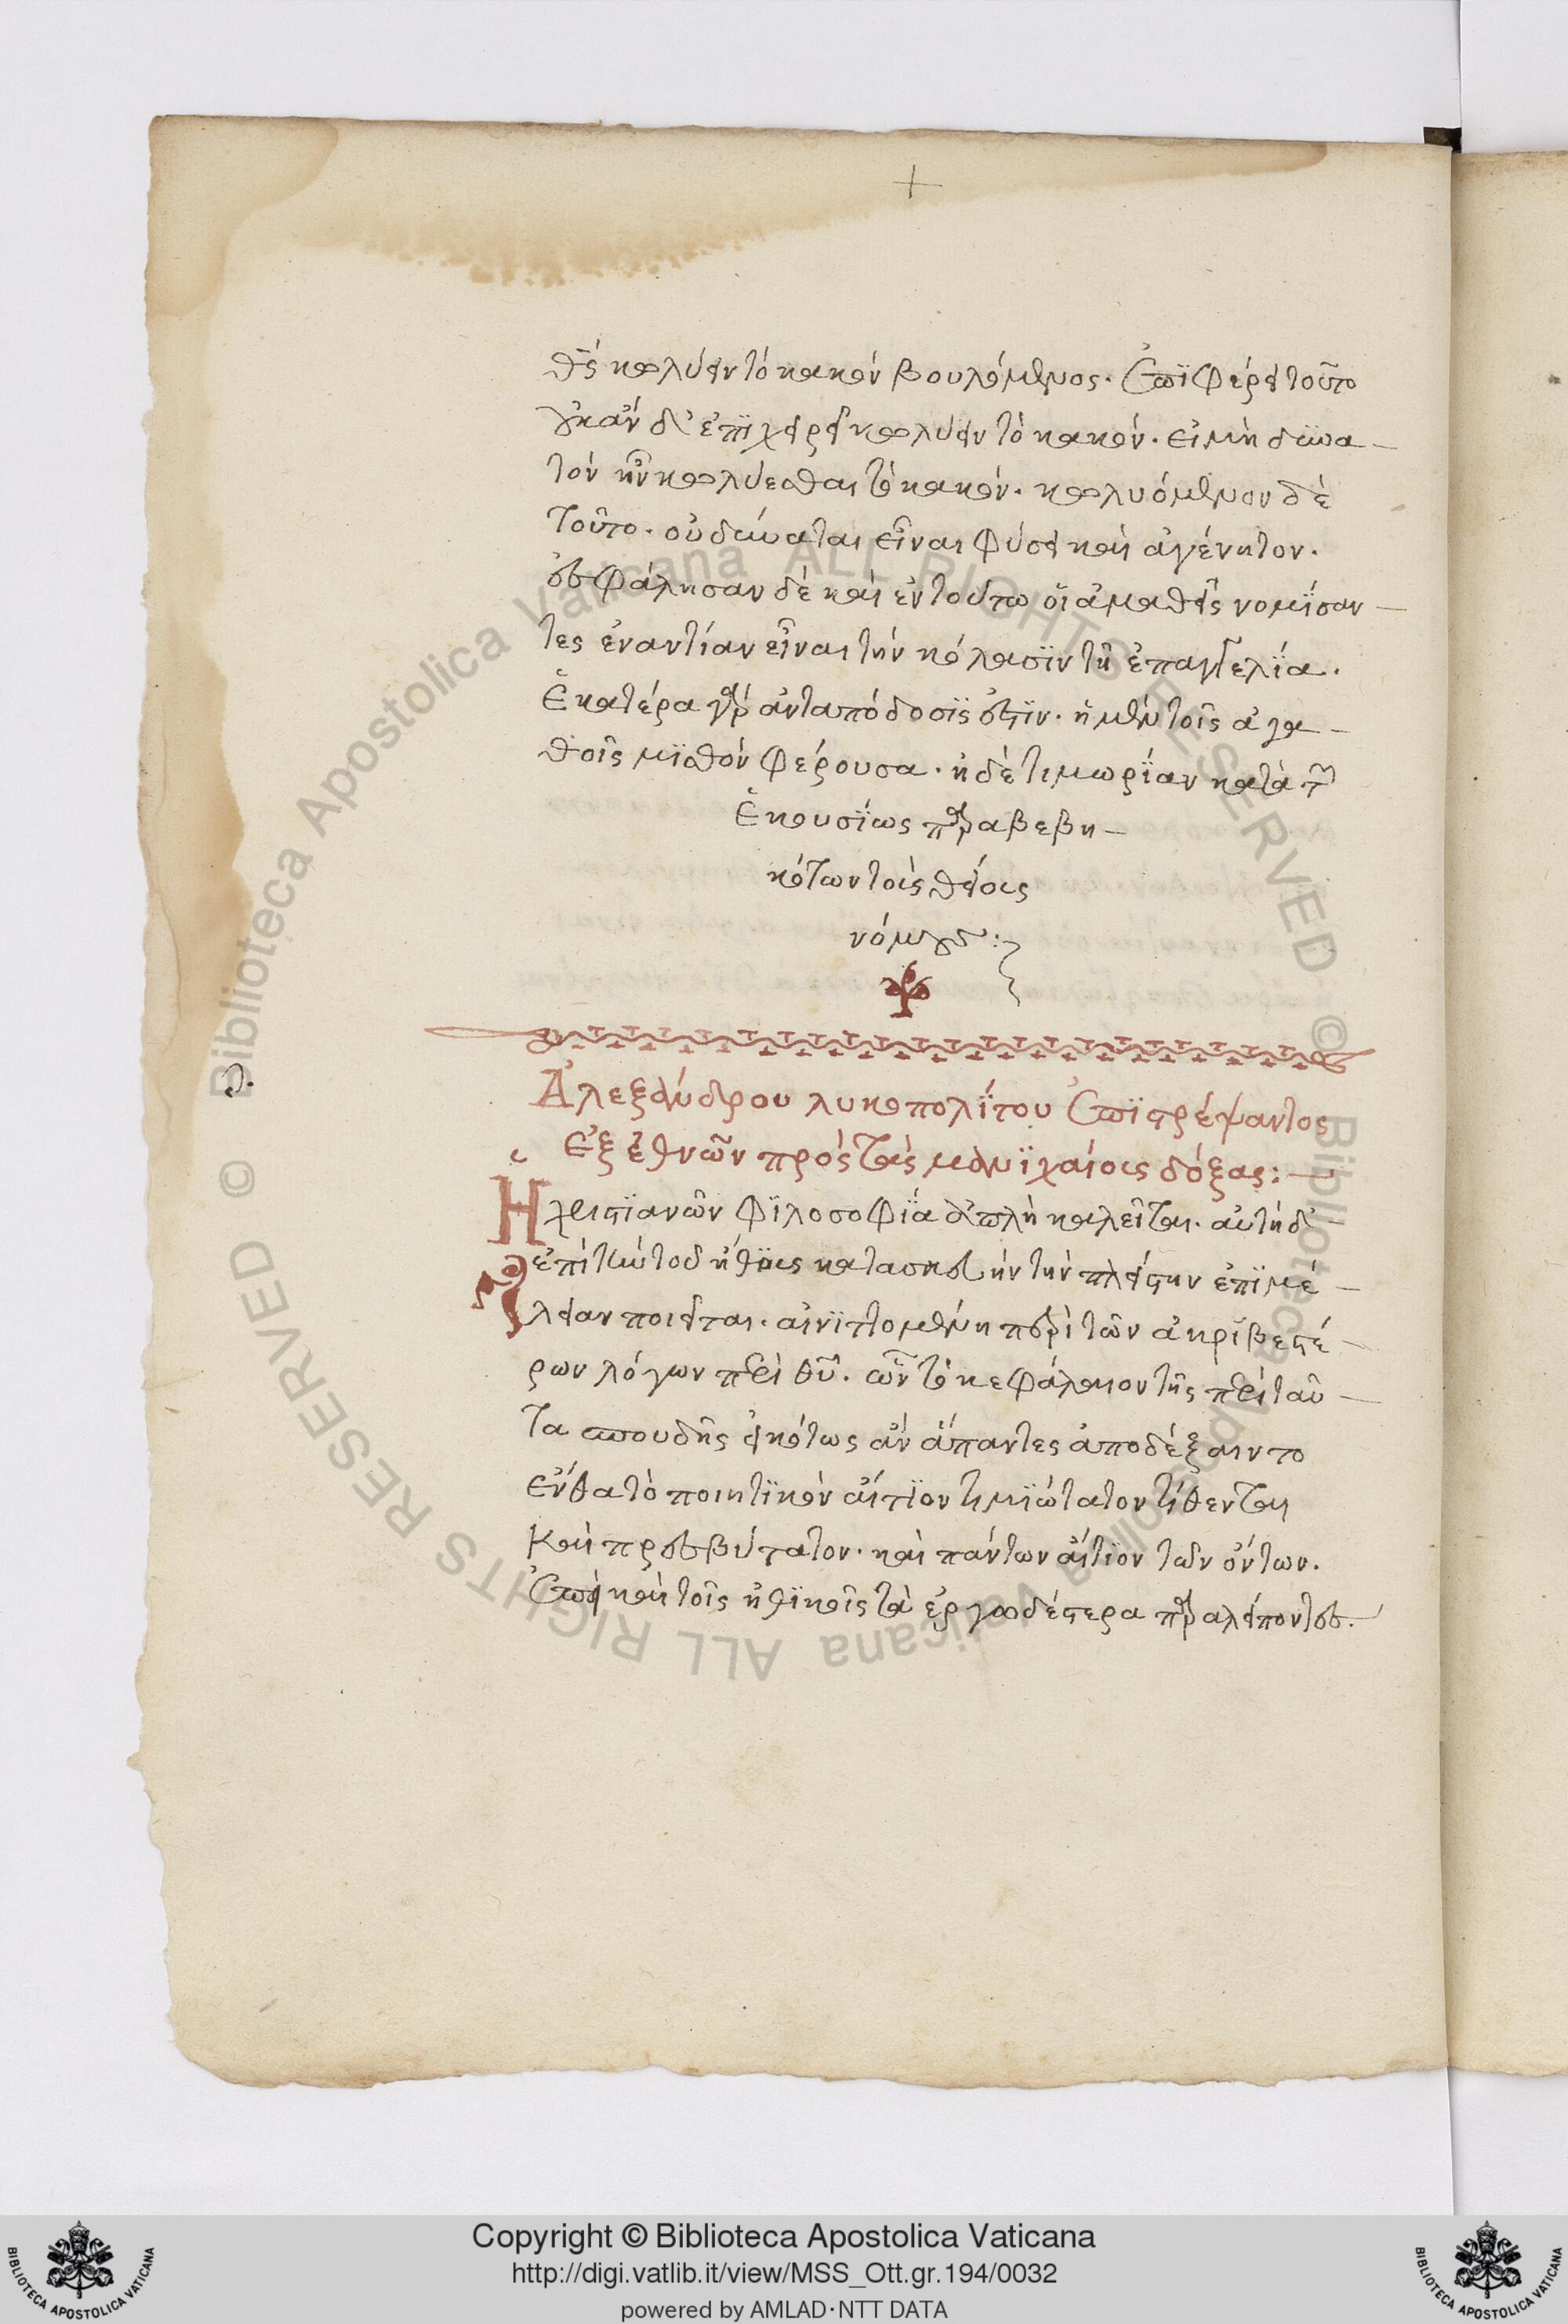 +
θεός κωλύειν τὸ κακὸν βουλόμενος. ἐπϊφέρει τοῦτο
κἀν δ' ἐπϊχειρεῖ κωλύειν τὸ κακόν. εἰ μὴ δυνα-
τὸν ἦν κωλύεσθαι τὸ κακόν. κωλυόμενον δὲ
τοῦτο. οὐ δύναται εἶναι φύσει καὶ ἀγένητον.
ἐσφάλησαν δὲ καὶ ἐν τούτω οἱ ἀμαθεῖς νομΐσαν-
τες ἐναντίαν εἶναι τὴν κόλασϊν τῆ ἐπαγγελΐα.
Ἑκατέρα γὰρ ἀνταπόδοσΐς ἐστϊν. ἡ μὲν τοῖς ἀγα-
θοῖς μϊσθὸν φέρουσα. ἡ δὲ τιμωρΐαν κατὰ τῶν
Ἑκουσΐως παραβεβη-
κότων τοὺς θείους
νόμους:
Ἀλεξάνδρου λυκοπολΐτου ἐπϊστρέψαντος
Ἐξ ἐθνῶν πρὸς τὰς μανϊχαίους δόξας:—
Ἡ χριστϊανῶν φϊλοσοφΐα ἁπλῆ καλεῖται. αὐτὴ δ'
ἐπὶ τὴν τοῦ ἤθους κατασκευὴν τὴν πλείστην ἐπϊμέ-
λειαν ποιεῖται. αἰνϊττομένη περὶ τῶν ἀκρϊβεστέ-
ρων λόγων περὶ θῦ. ὧν τὸ κεφάλαιον τῆς περὶ ταῦ-
τα σπουδῆς εἰκότως ἂν ἅπαντες ἀποδέξαιντο
ἔνθα τὸ ποιητϊκὸν αἴτϊον τιμϊώτατον τίθενται
Καὶ πρεσβύτατον. καὶ πάντων αἴτϊον τῶν ὄντων.
Ἐπεὶ καὶ τοῖς ἠθϊκοῖς τὰ ἐργωδέστερα παραλείποντες.
Copyright © Biblioteca Apostolica Vaticana
http://digi.vatlib.it/view/MSS_Ott.gr.194/0032
powered by AMLAD·NTT DATA
BIBLIOTECA APOSTOLICA VATICANA
BIBLIOTECA APOSTOLICA VATICANA
© Biblioteca Apostolica Vaticana ALL RIGHTS RESERVED
© Biblioteca Apostolica Vaticana ALL RIGHTS RESERVED